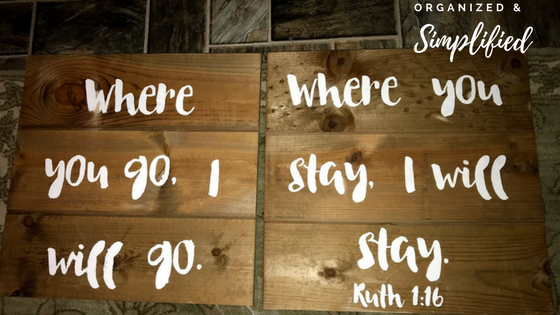 ORGANIZED &
Simplified
Where
you go, I
will go.
Where you
stay, I will
stay.
Ruth 1:16